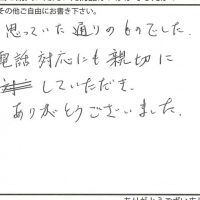 その他ご自由にお書き下さい。
思っていた通りのものでした。
電話対応にも親切に
していただき、
ありがとうございました。
ありがとうございま